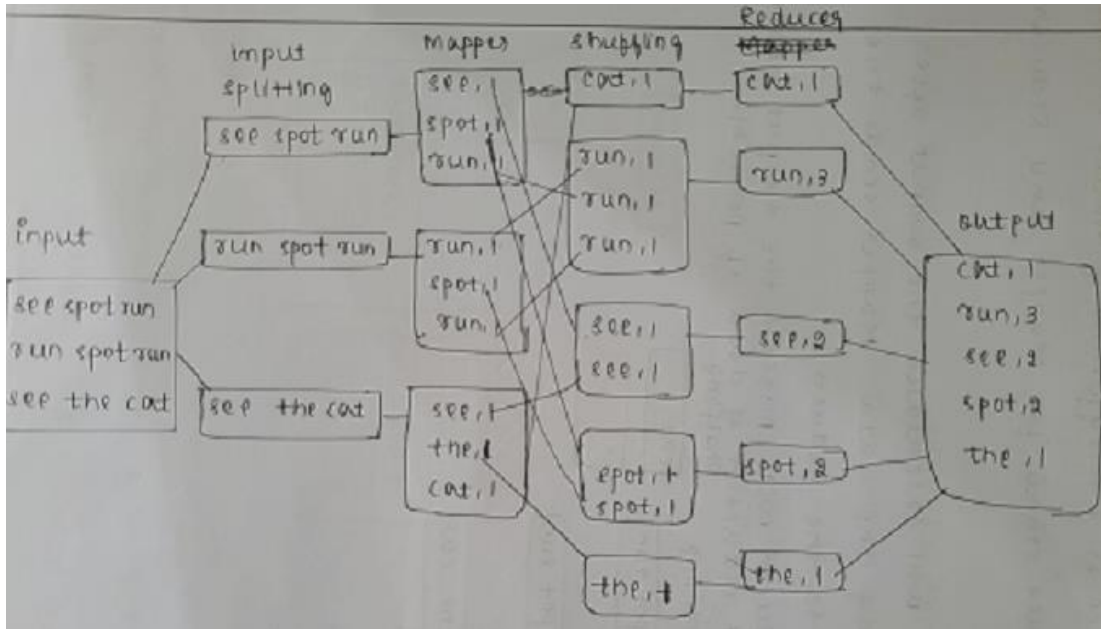 input
see spot run
run spot run
see the cat
input
splitting
see spot run
run spot run
see the cat
Mapper
see,1
spot,1
run,1
run,1
spot,1
run,
see,1
the,1
cat,1
shuffling
cat,1
run,1
run,1
run,1
see,1
see,1
spot,1
spot,1
the,1
Reducer
Mapper
cat,1
run,3
see,2
spot,2
the,1
output
cat,1
run,3
see,2
spot,2
the,1